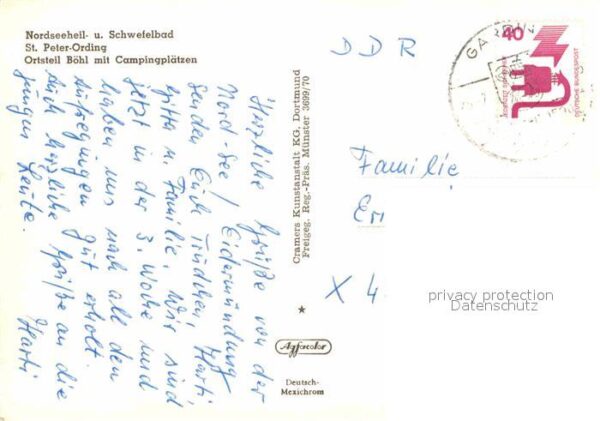 Nordseeheil- u. Schwefelbad
St. Peter-Ording
Ortsteil Böhl mit Campingplätzen
Herzliche Grüße von der
Nord-See / Eidermündung
senden Euch Trudchen, Harti
Gitta u. Familie. Wir sind
jetzt in der 3. Woche und
haben uns nach all den
Aufregungen gut erholt.
Auch herzliche Grüße an die
jungen Leute. Harti
Cramers Kunstanstalt KG, Dortmund
Freigeg. Reg.-Präs. Münster 3699/70
Agfacolor
Deutsch-
Mexichrom
DDR
GARDING
40
DEUTSCHE BUNDESPOST
Familie
X 4
privacy protection
Datenschutz